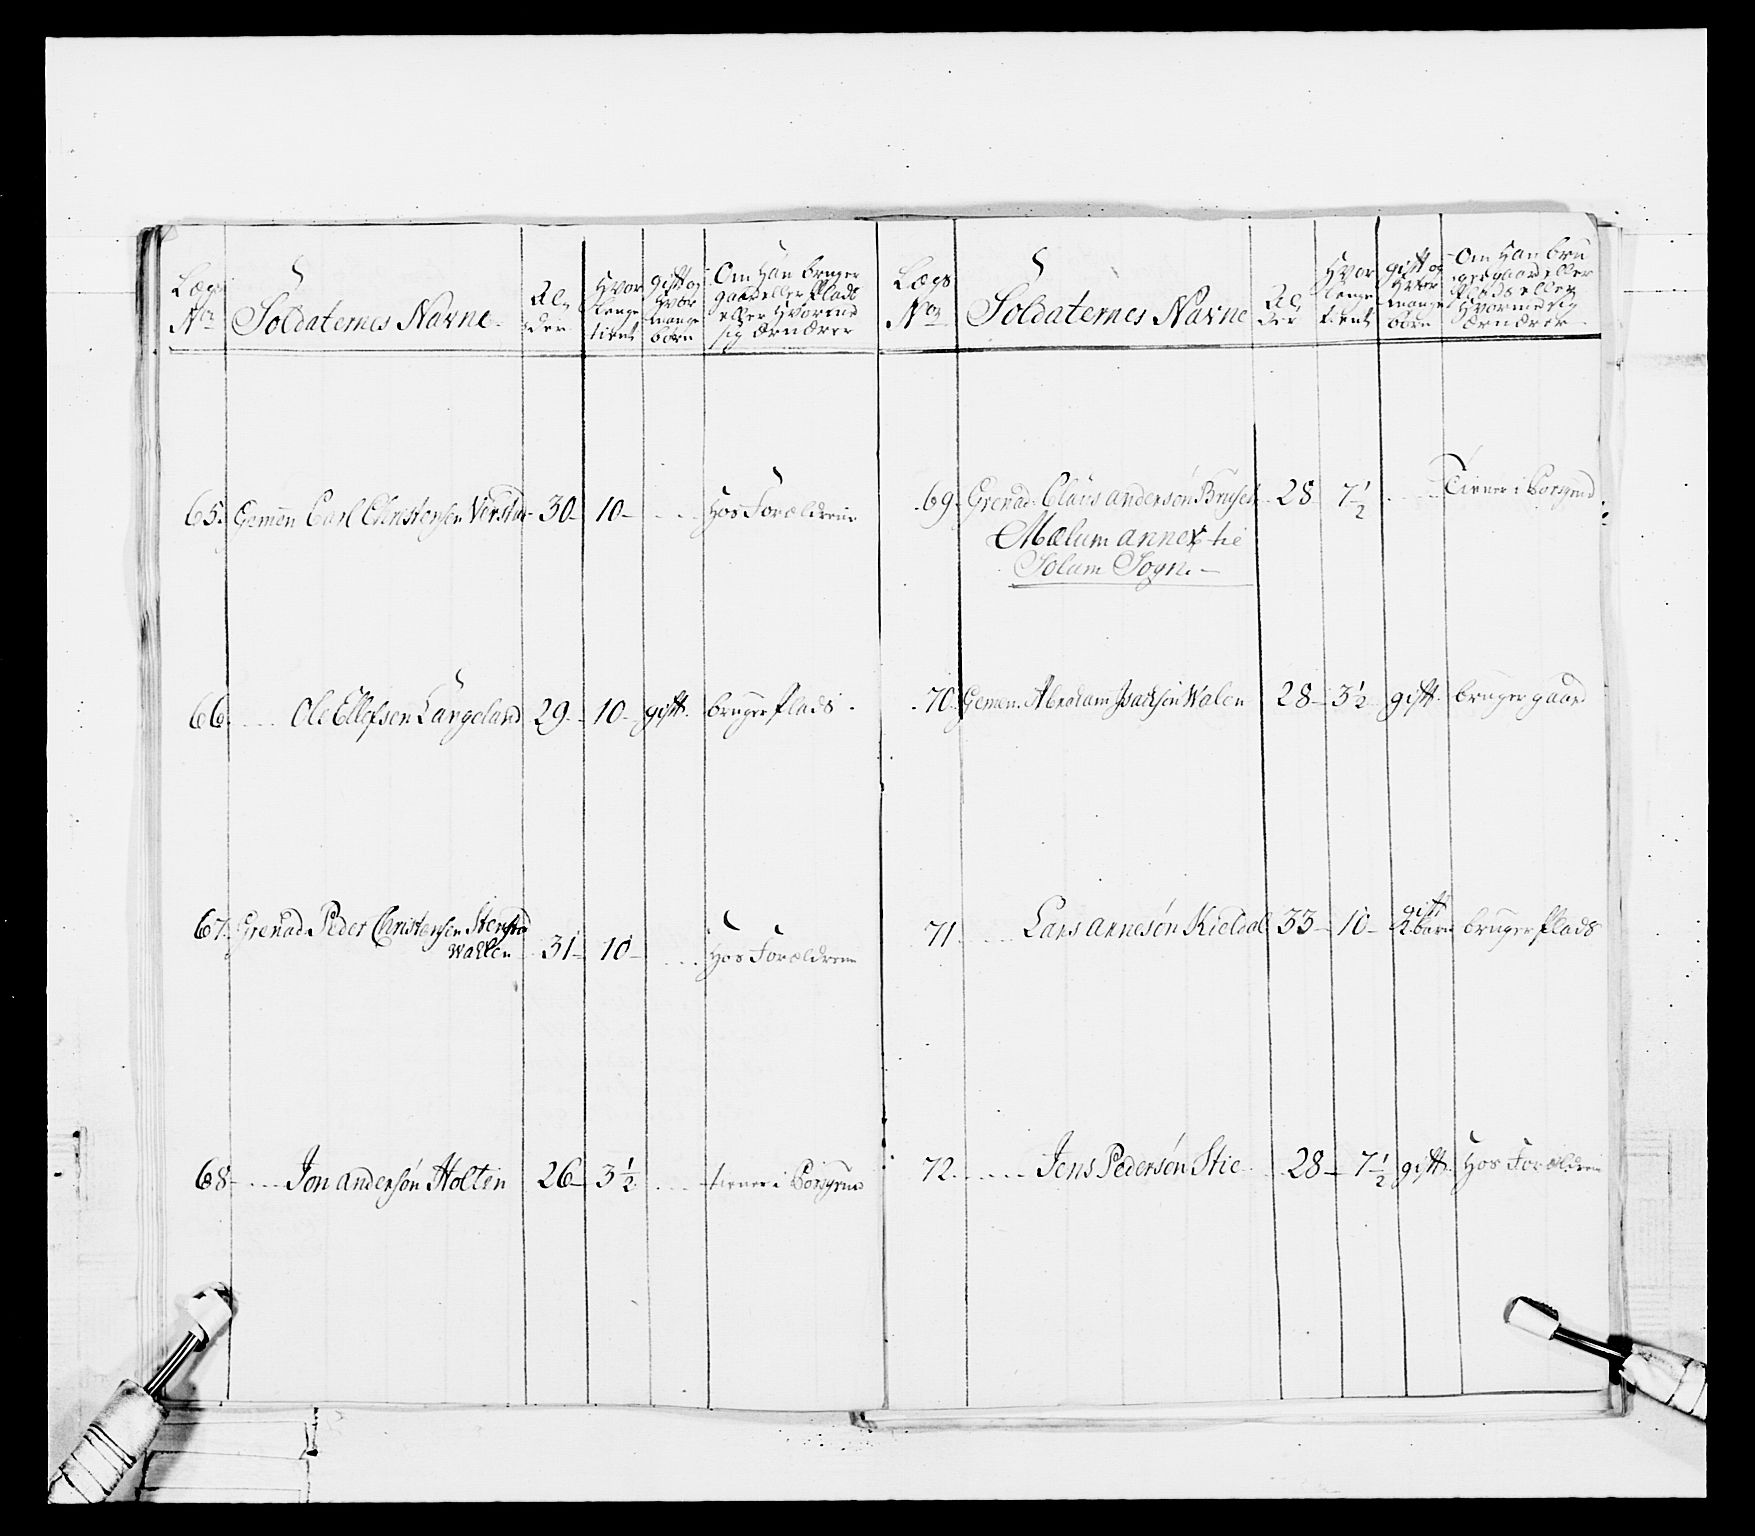 Lægs No: Soldaternes Navne. Al- der Hvor længe tient gift og Hvor mange børn Om Han bruger gaard eller Plads eller Hvormed sig Ærnærer
65. Gemen Carl Christensen 30 10 Hos Forældrene
66. Ole Ellefsen Langeland 29 10 gift. bruger Plads
67. Grenad. Peder Christensen
Wallen 31 10 Hos Forældrene
68 Jon andersøn Holten 26 3 1/2 tiener i Porsgrund
Lægs No: Soldaternes Navne Al der Hvor længe tient gift og Hvor mange børn Om Han bru ger gaard eller Plads eller Hvormed sig Ærnærer
69. Grenad. Claus andersøn 28 7 1/2 Tiener i Porsgrund
Mælum annex til
Solum Sogn.
70. Gemen. Abraham Isachsen Walen 28 3 1/2 gift. bruger gaard
71. Lars Arnesøn Kieldal 33 10 gift 2 børn bruger Plads
72. Jens Pedersøn Stie 28 7 1/2 gift Hos Forældrene